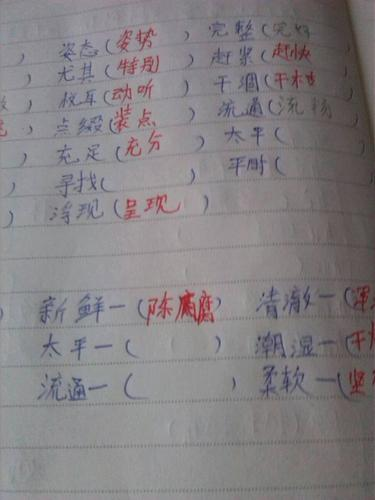 姿态(姿势) 完整(完好
) 尤其(特别) 赶紧(赶快
) 悦耳(动听) 干涸(干枯
) 点缀(装点) 流通(流畅
) 充足(充分) 太平(
) 寻找( ) 平时(
) 浮现(呈现)
) 新鲜—(陈腐) 清澈—(浑
太平—( ) 潮湿—(干
流通—( ) 柔软—(坚